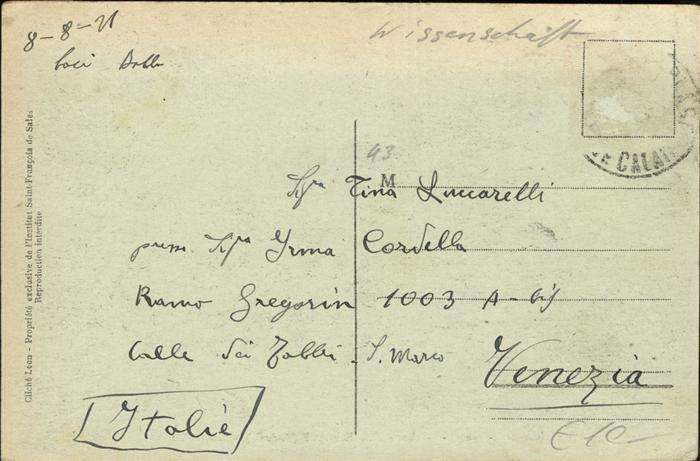 8-8-21
Baci
Wissenschaft
DE CALAIS
43
M
Sig.ra Tina Luccarelli
presso Sig.ra Irma Cordella
Ramo Gregorin 1003 A-bis
Calle dei Fabbri - S. Marco
Venezia
Italie
€ 10-
Cliché Leon - Propriété exclusive de l'Institut Saint-François de Sales
Reproduction interdite